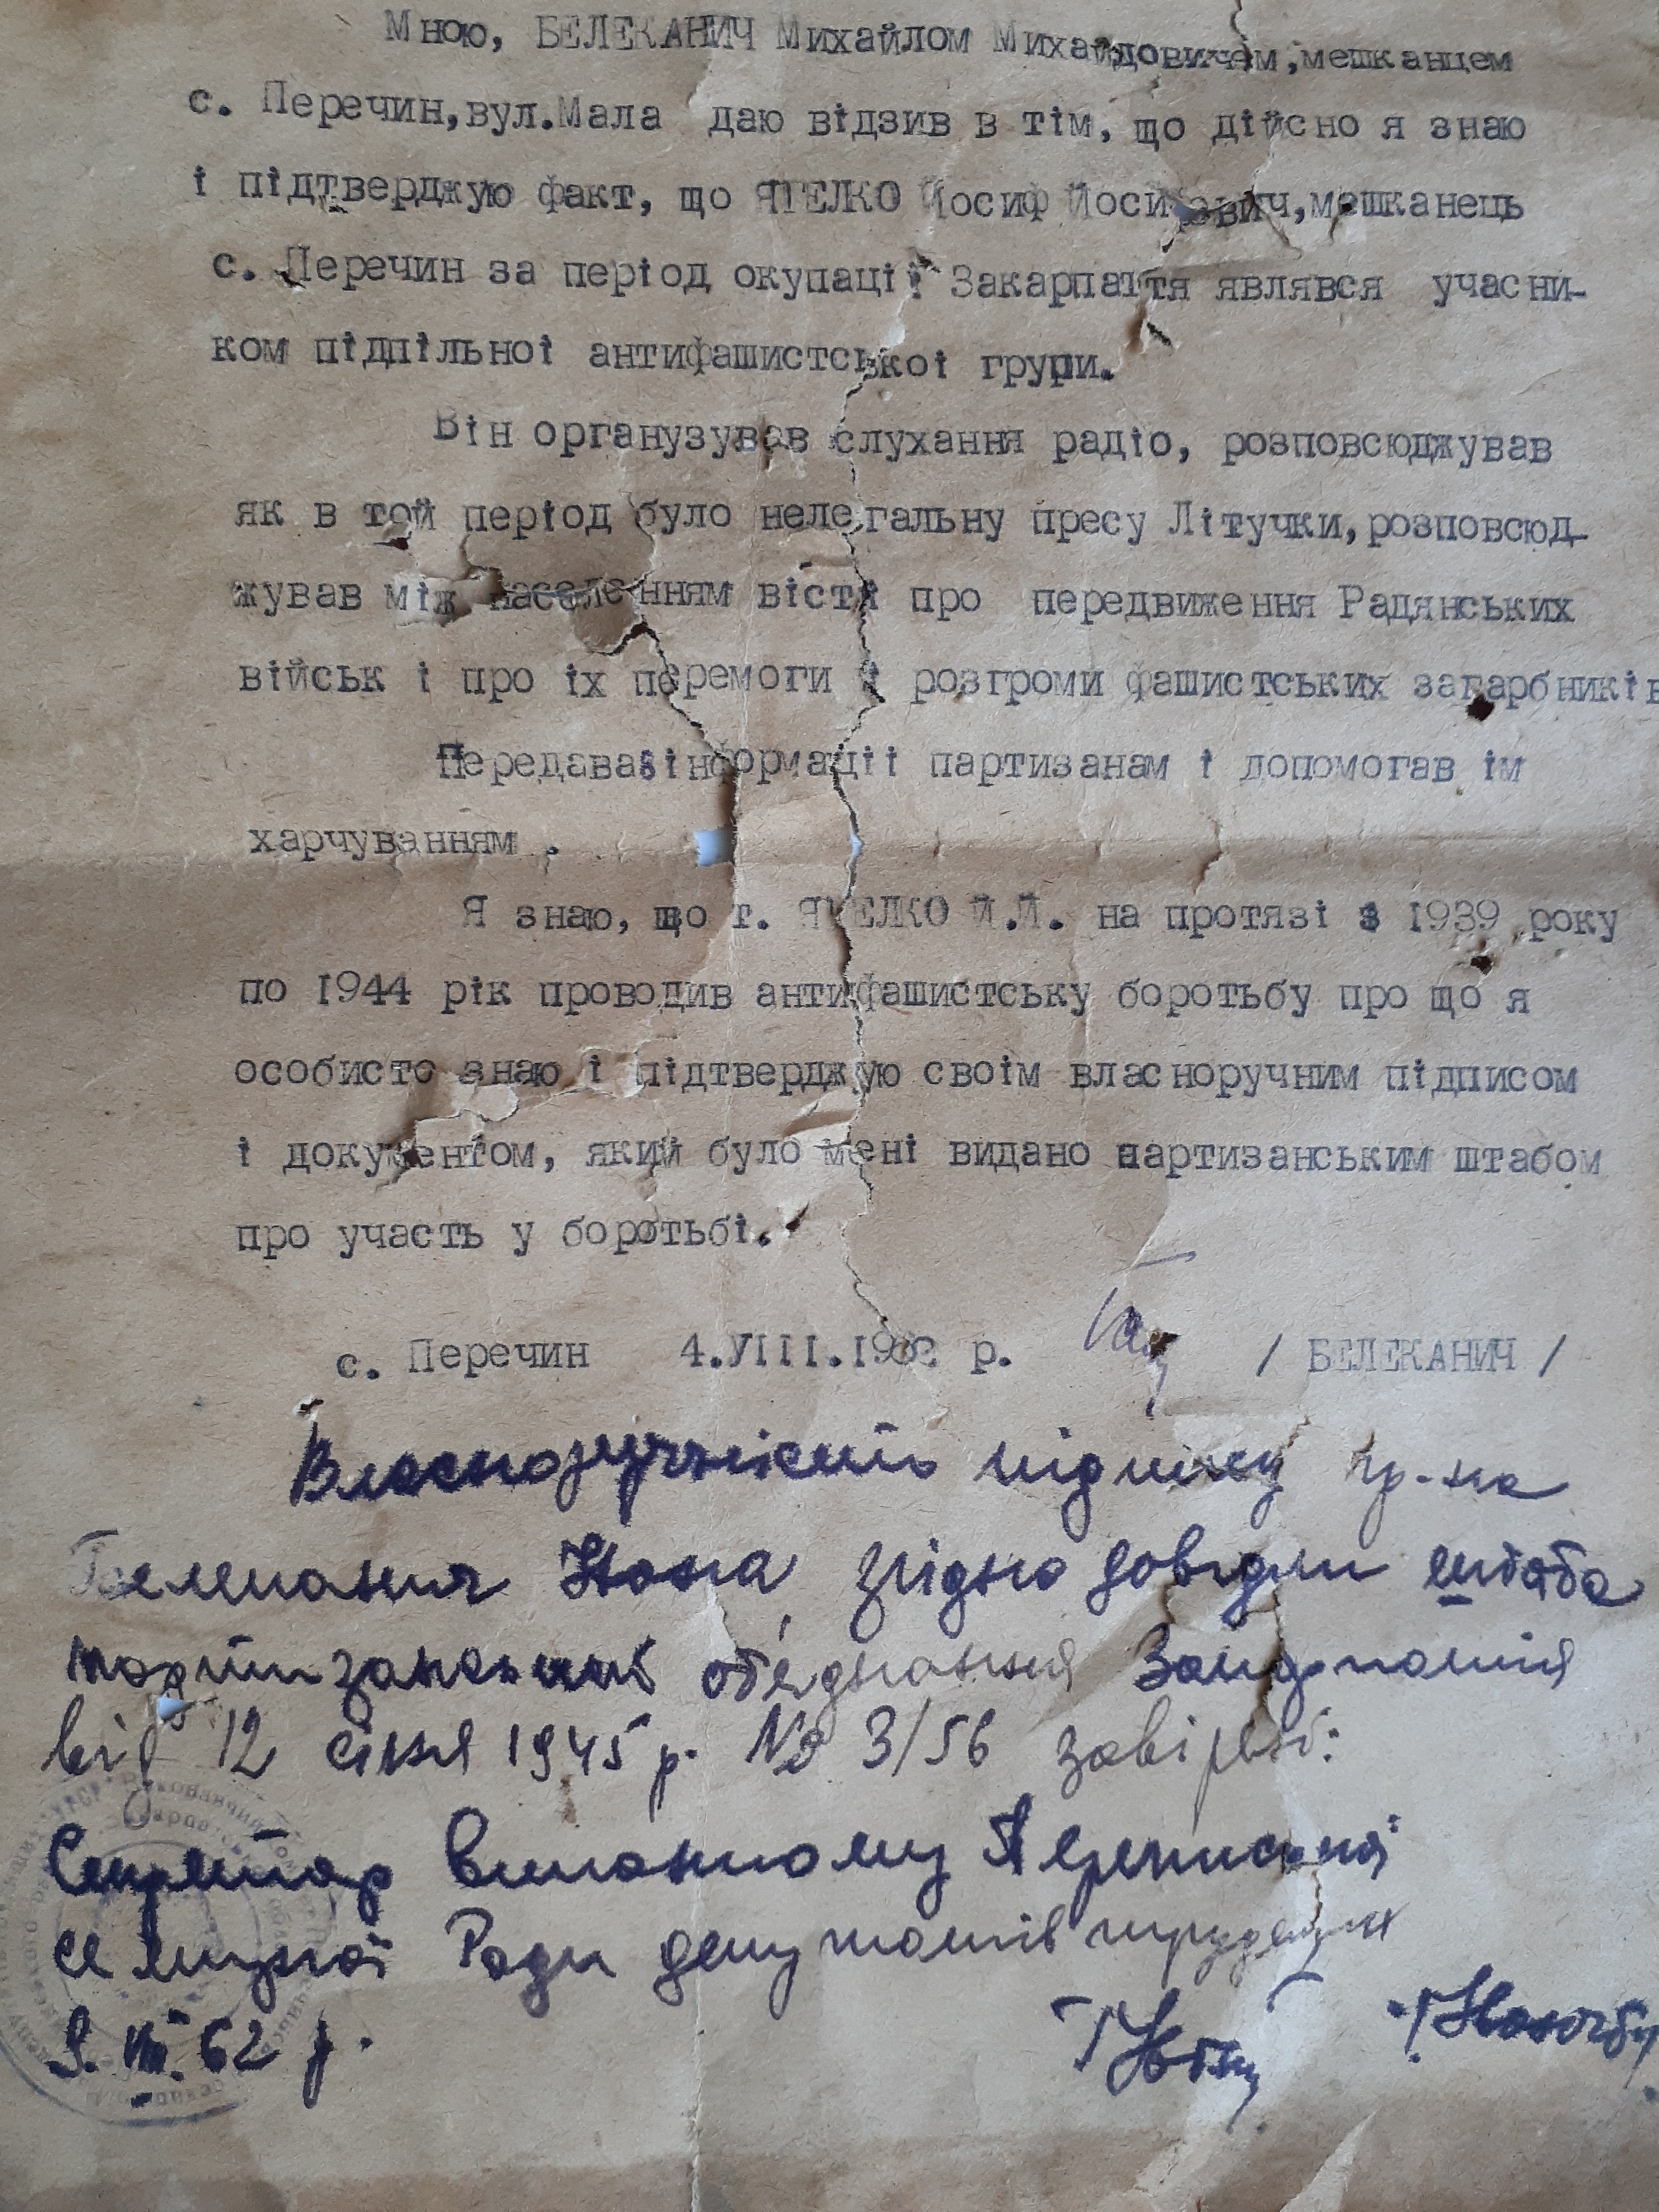 Мною, БЕЛЕКАНИЧ Михайлом Михайловичем,мешканцем
с. Перечин,вул.Мала даю відзив в тім, що дійсно я знаю
і підтверджую факт, що ЯГЕЛКО Йосиф Йосипович,мешканець
с. Перечин за період окупації Закарпаття являвся учасни-
ком підпільної антифашистської групи.
Він органузував слухання радіо, розповсюджував
як в той період було нелегальну пресу Літучки,розповсюд-
жував між населенням вісти про передвиження Радянських
військ і про їх перемоги і розгроми фашистських загарбників
Передавав інформації партизанам і допомогав їм
харчуванням .
Я знаю, що т. ЯГЕЛКО Й.Й. на протязі з 1939 року
по 1944 рік проводив антифашистську боротьбу про що я
особисто знаю і підтверджую своїм власноручним підписом
і документом, який було мені видано партизанським штабом
про участь у боротьбі.
с. Перечин 4.УІІІ.1962 р. / БЕЛЕКАНИЧ /
Власноручність підпису гр-на
згідно довідки штаба
партизанський об'єднання Закарпаття
від 12 січня 1945 р. № 3/56 завіряю:
Секретар виконкому Перечинської
селищної Ради депутатів трудящих
VIII 62 р.